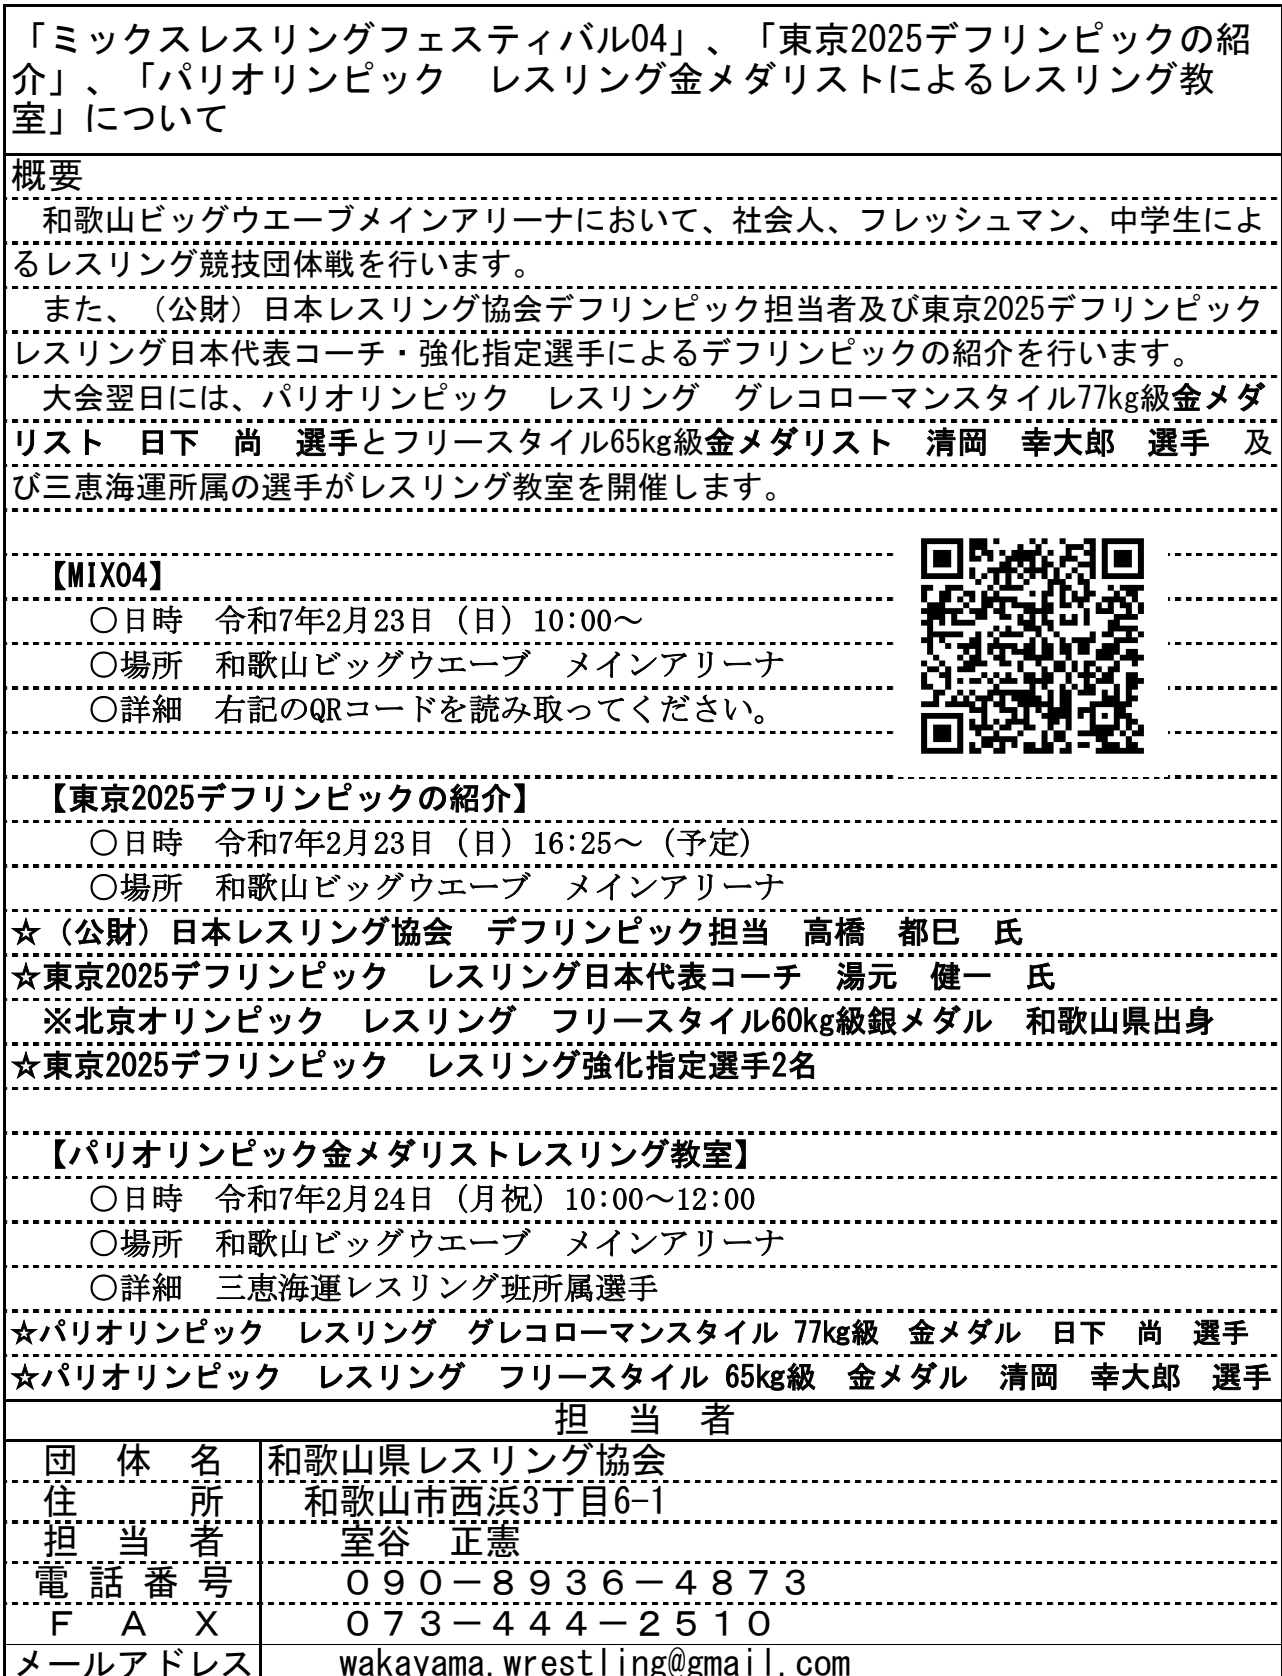 「ミックスレスリングフェスティバル04」、「東京2025デフリンピックの紹
介」、「パリオリンピック　レスリング金メダリストによるレスリング教
室」について
概要
　和歌山ビッグウエーブメインアリーナにおいて、社会人、フレッシュマン、中学生によ
るレスリング競技団体戦を行います。
　また、（公財）日本レスリング協会デフリンピック担当者及び東京2025デフリンピック
レスリング日本代表コーチ・強化指定選手によるデフリンピックの紹介を行います。
　大会翌日には、パリオリンピック　レスリング　グレコローマンスタイル77kg級金メダ
リスト　日下　尚　選手とフリースタイル65kg級金メダリスト　清岡　幸大郎　選手　及
び三恵海運所属の選手がレスリング教室を開催します。
【MIX04】
○日時　令和7年2月23日（日）10:00～
○場所　和歌山ビッグウエーブ　メインアリーナ
○詳細　右記のQRコードを読み取ってください。
【東京2025デフリンピックの紹介】
○日時　令和7年2月23日（日）16:25～（予定）
○場所　和歌山ビッグウエーブ　メインアリーナ
☆（公財）日本レスリング協会　デフリンピック担当　高橋　都巳　氏
☆東京2025デフリンピック　レスリング日本代表コーチ　湯元　健一　氏
※北京オリンピック　レスリング　フリースタイル60kg級銀メダル　和歌山県出身
☆東京2025デフリンピック　レスリング強化指定選手2名
【パリオリンピック金メダリストレスリング教室】
○日時　令和7年2月24日（月祝）10:00～12:00
○場所　和歌山ビッグウエーブ　メインアリーナ
○詳細　三恵海運レスリング班所属選手
☆パリオリンピック　レスリング　グレコローマンスタイル 77kg級　金メダル　日下　尚　選手
☆パリオリンピック　レスリング　フリースタイル 65kg級　金メダル　清岡　幸大郎　選手
担　当　者
団　体　名　和歌山県レスリング協会
住　　　所　和歌山市西浜3丁目6-1
担　当　者　室谷　正憲
電 話 番 号　０９０－８９３６－４８７３
Ｆ　Ａ　Ｘ　０７３－４４４－２５１０
メールアドレス　wakayama.wrestling@gmail.com